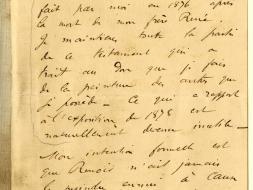 fait par moi en 1876 après
la mort de mon frère René.
Je maintiens toute la partie
de ce testament qui a
trait au don que je fais
de la peinture des autres que
je possède — Ce qui a rapport
à l'exposition de 1878 est
naturellement devenu inutile —
Mon intention formelle est
que Renoir n'ait jamais
ennui à cause